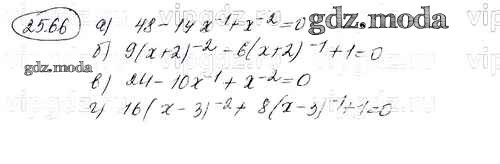 25.66 а) 48 - 14x⁻¹ + x⁻² = 0 gdz.moda
б) 9(x+2)⁻² - 6(x+2)⁻¹ + 1 = 0
gdz.moda
в) 24 - 10x⁻¹ + x⁻² = 0
г) 16(x-3)⁻² + 8(x-3)⁻¹ + 1 = 0